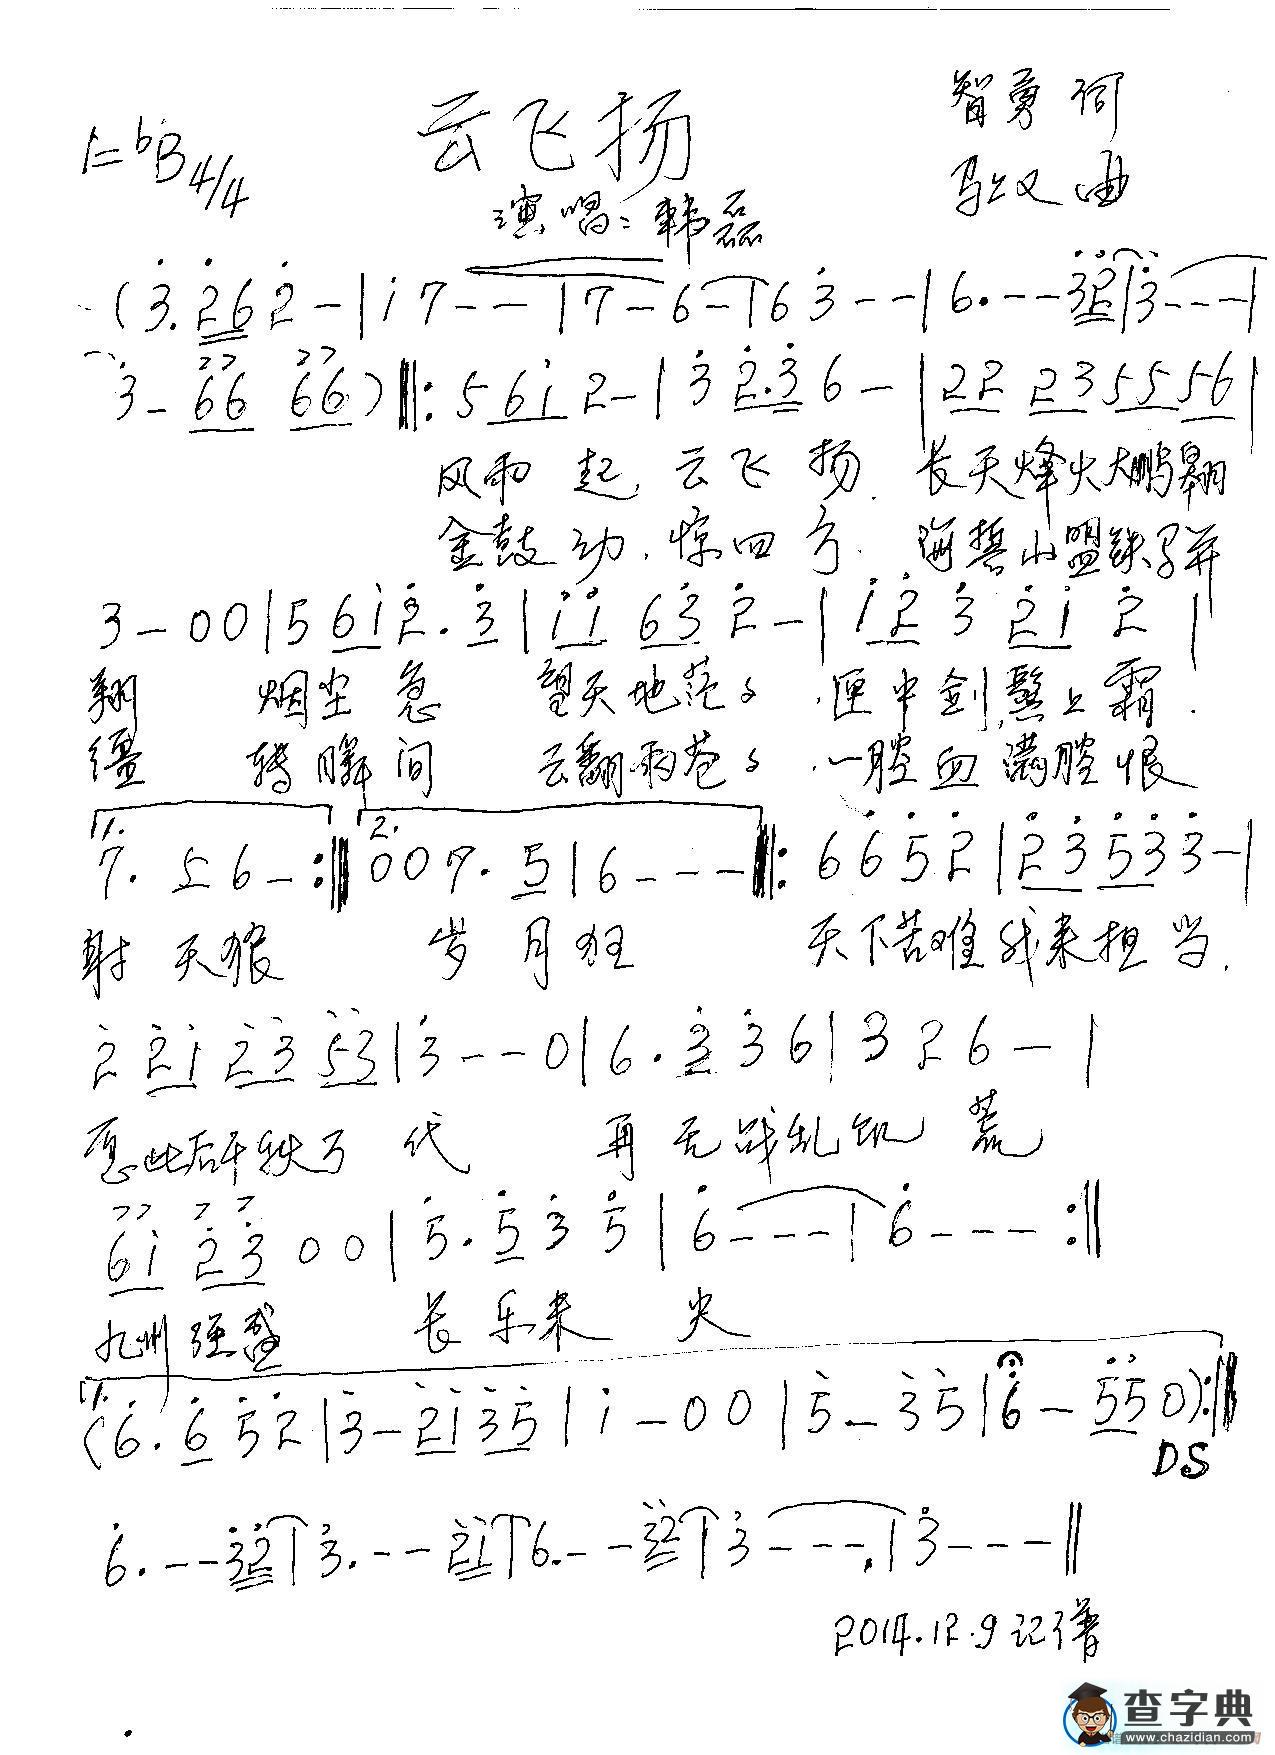 云飞扬
智勇 词
马上又 曲
1=bB 4/4
演唱:韩磊
(3. 2 6 2 - | i 7 - - | 7 - 6 - | 6 3 - - | 6. - - 3 2 | 3 - - - |
3 - 6 6 6 6 ) ‖: 5 6 i 2 - | 3 2. 3 6 - | 2 2 2 3 5 5 5 6 |
风雨 起, 云飞 扬. 长天烽火大鹏翱
金鼓 动, 惊四 方. 海誓山盟铁马并
3 - 0 0 | 5 6 i 2. 3 | i i 6 3 2 - | i 2 3 2 i 2 |
翔 烟尘 急 望天地茫々. 匣中剑,鬓上霜.
缰 转瞬间 云翻雨苍々. 一腔血满腔恨
1. 2.
7. 5 6 - :‖ 0 0 7. 5 | 6 - - - ‖: 6 6 5 2 | 2 3 5 3 3 - |
射 天狼 岁月狂 天下苦难我来担当.
2 2 i 2 3 5 3 | 3 - - 0 | 6. 3 3 6 | 3 2 6 - |
愿此后千秩万 代 再无战乱饥 荒
6 i 2 3 0 0 | 5. 5 3 5 | 6 - - - | 6 - - - :‖
九州强盛 长乐未 央
1.
(6. 6 5 2 | 3 - 2 i 3 5 | i - 0 0 | 5 - 3 5 | 6 - 5 5 0 ) :‖
DS
6. - - 3 2 | 3. - - - 2 i | 6. - - 3 2 | 3 - - -. | 3 - - - ‖
2014.12.9记谱
查字典
www.chazidian.com